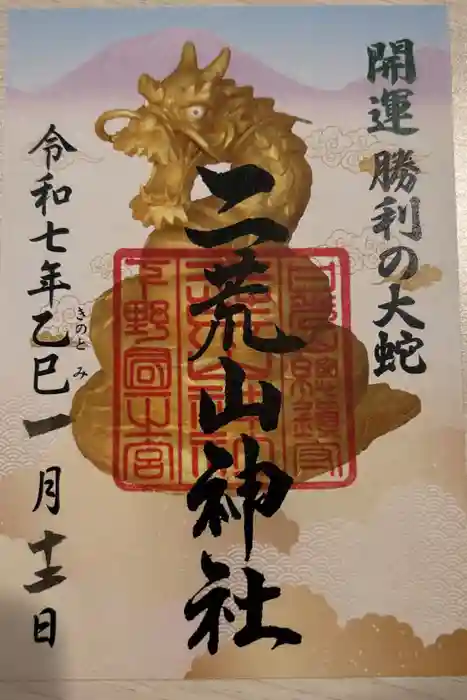 開運 勝利の大蛇
二荒山神社
令和七年乙巳一月十二日
きのとみ
下野國一之宮